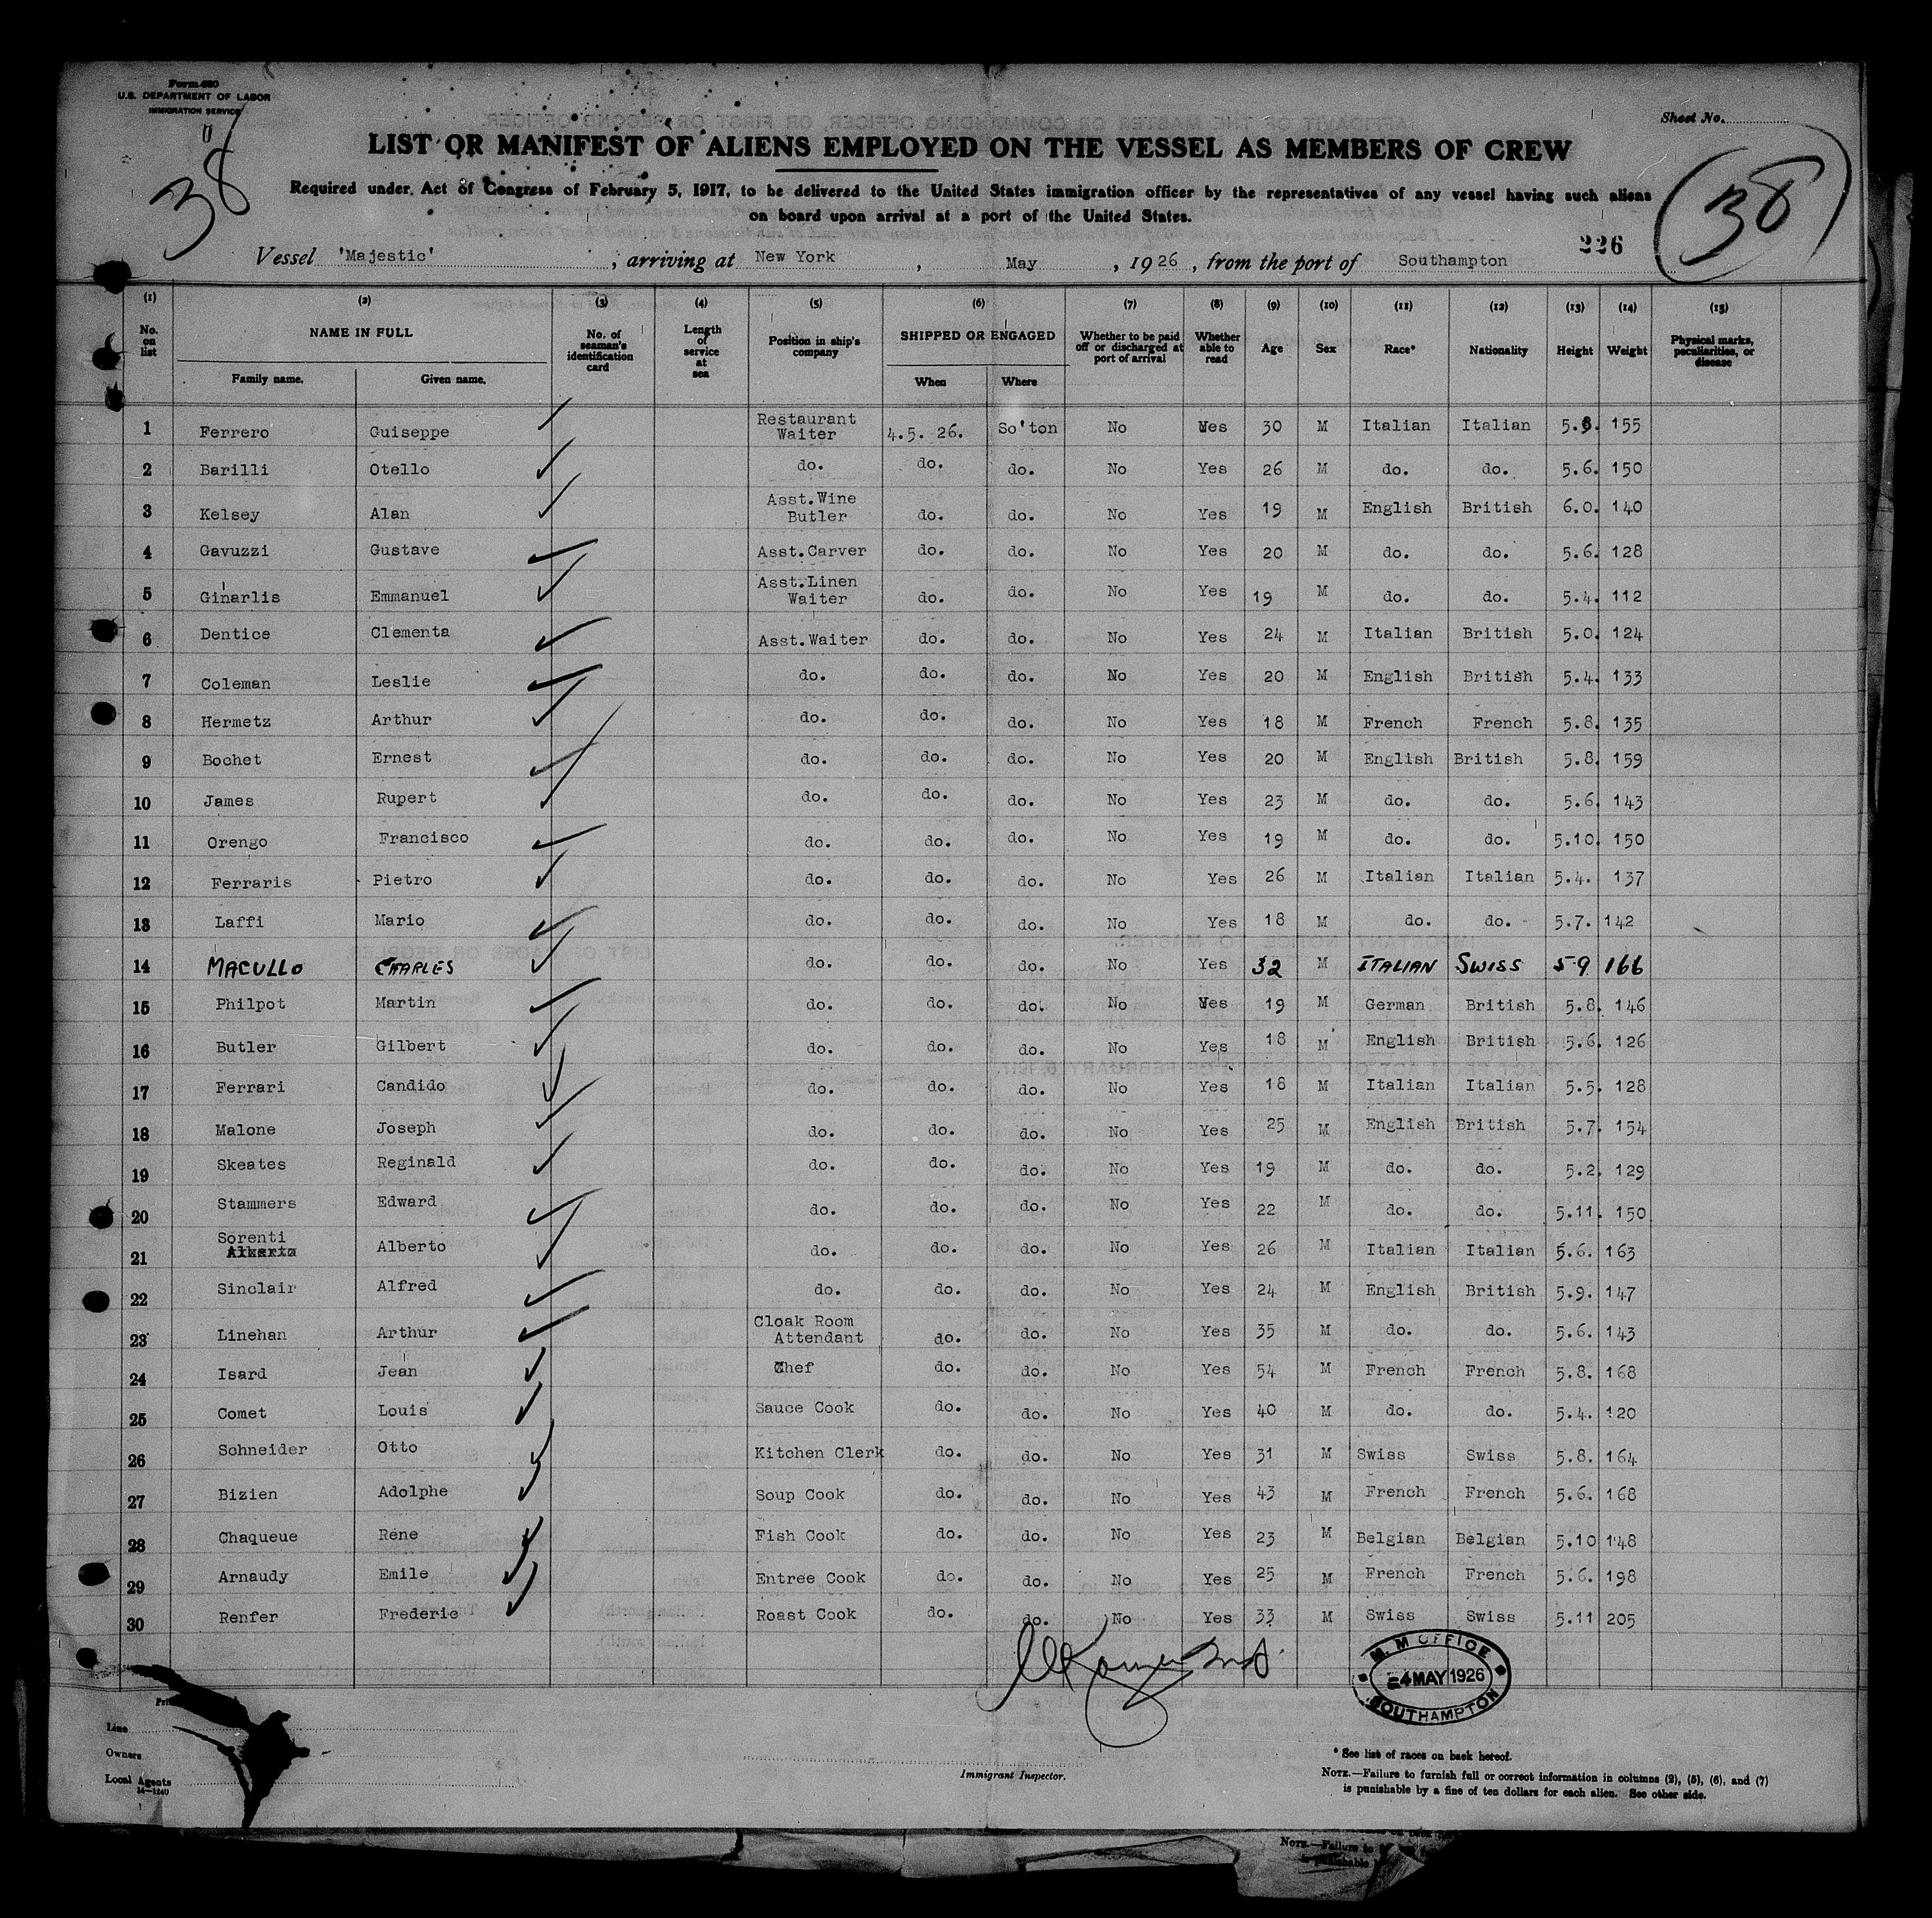 Form 680
U.S. DEPARTMENT OF LABOR
IMMIGRATION SERVICE
Sheet No.
38
LIST OR MANIFEST OF ALIENS EMPLOYED ON THE VESSEL AS MEMBERS OF CREW
38
Required under Act of Congress of February 5, 1917, to be delivered to the United States immigration officer by the representatives of any vessel having such aliens
on board upon arrival at a port of the United States.
226
Vessel 'Majestic', arriving at New York, May, 1926, from the port of Southampton
(1) (2) (3) (4) (5) (6) (7) (8) (9) (10) (11) (12) (13) (14) (15)
No. on list NAME IN FULL Family name. Given name. No. of seaman's identification card Length of service at sea Position in ship's company SHIPPED OR ENGAGED When Where Whether to be paid off or discharged at port of arrival Whether able to read Age Sex Race* Nationality Height Weight Physical marks, peculiarities, or disease
1 Ferrero Guiseppe Restaurant Waiter 4.5. 26. So'ton No Yes 30 M Italian Italian 5. 155
2 Barilli Otello do. do. do. No Yes 26 M do. do. 5.6. 150
3 Kelsey Alan Asst.Wine Butler do. do. No Yes 19 M English British 6.0. 140
4 Gavuzzi Gustave Asst.Carver do. do. No Yes 20 M do. do. 5.6. 128
5 Ginarlis Emmanuel Asst.Linen Waiter do. do. No Yes 19 M do. do. 5.4. 112
6 Dentice Clementa Asst.Waiter do. do. No Yes 24 M Italian British 5.0. 124
7 Coleman Leslie do. do. do. No Yes 20 M English British 5.4. 133
8 Hermetz Arthur do. do. do. No Yes 18 M French French 5.8. 135
9 Bochet Ernest do. do. do. No Yes 20 M English British 5.8. 159
10 James Rupert do. do. do. No Yes 23 M do. do. 5.6. 143
11 Orengo Francisco do. do. do. No Yes 19 M do. do. 5.10. 150
12 Ferraris Pietro do. do. do. No Yes 26 M Italian Italian 5.4. 137
13 Laffi Mario do. do. do. No Yes 18 M do. do. 5.7. 142
14 MACULLO CHARLES do. do. do. No Yes 32 M ITALIAN SWISS 5 9 166
15 Philpot Martin do. do. do. No Yes 19 M German British 5.8. 146
16 Butler Gilbert do. do. do. No Yes 18 M English British 5.6. 126
17 Ferrari Candido do. do. do. No Yes 18 M Italian Italian 5.5. 128
18 Malone Joseph do. do. do. No Yes 25 M English British 5.7. 154
19 Skeates Reginald do. do. do. No Yes 19 M do. do. 5.2. 129
20 Stammers Edward do. do. do. No Yes 22 M do. do. 5.11. 150
21 Sorenti Alberto do. do. do. No Yes 26 M Italian Italian 5.6. 163
22 Sinclair Alfred do. do. do. No Yes 24 M English British 5.9. 147
23 Linehan Arthur Cloak Room Attendant do. do. No Yes 35 M do. do. 5.6. 143
24 Isard Jean Chef do. do. No Yes 54 M French French 5.8. 168
25 Comet Louis Sauce Cook do. do. No Yes 40 M do. do. 5.4. 120
26 Schneider Otto Kitchen Clerk do. do. No Yes 31 M Swiss Swiss 5.8. 164
27 Bizien Adolphe Soup Cook do. do. No Yes 43 M French French 5.6. 168
28 Chaqueue Rene Fish Cook do. do. No Yes 23 M Belgian Belgian 5.10 148
29 Arnaudy Emile Entree Cook do. do. No Yes 25 M French French 5.6. 198
30 Renfer Frederic Roast Cook do. do. No Yes 33 M Swiss Swiss 5.11 205
M. M OFFICE
4 MAY 1926
SOUTHAMPTON
Line
Owners
Local Agents
14—1240
Immigrant Inspector.
* See list of races on back hereof.
NOTE.—Failure to furnish full or correct information in columns (2), (5), (6), and (7)
is punishable by a fine of ten dollars for each alien. See other side.
NOTE.—Failure to
is punishable